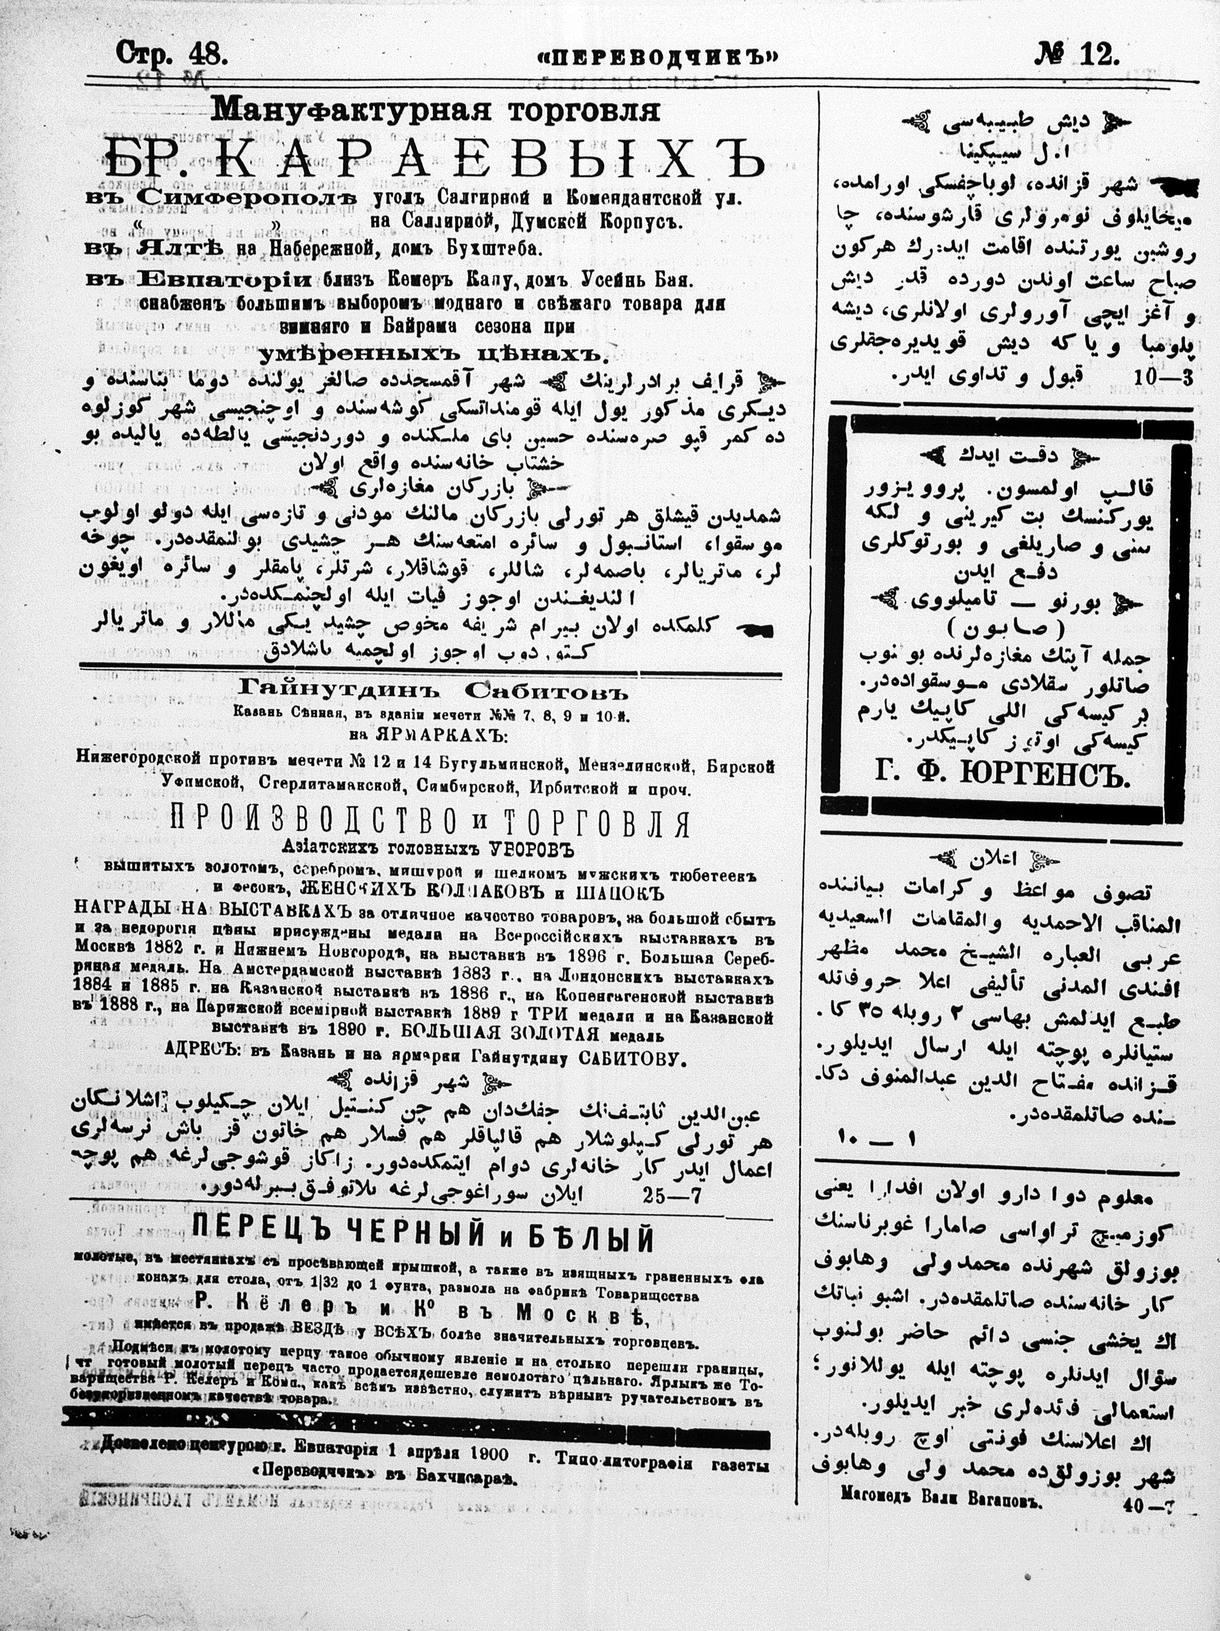 Стр. 48.
«ПЕРЕВОДЧИКЪ»
№ 12.
Мануфактурная торговля
БР. КАРАЕВЫХЪ
въ Симферополѣ уголъ Салгирной и Комендантской ул.
“ „ на Салгирной, Думской Корпусъ.
въ Ялтѣ на Набережной, домъ Бухштаба.
въ Евпаторіи близъ Кемеръ Капу, домъ Усейнъ Бая.
снабженъ большимъ выборомъ моднаго и свѣжаго товара для
зимняго и Байрама сезона при
умѣренныхъ цѣнахъ.
قرایف برادرلرینك شهر آقمسجدده صالغر یولنده دوما بناسنده و
دیكری مذكور یول ایله قومنداتسكی كوشه‌سنده و اوچنجیسی شهر كوزلوه
ده كمر قپو صره‌سنده حسین بای ملكنده و دوردنجیسی یالطه‌ده یالیده بو
خشتاب خانه‌سنده واقع اولان
بازركان مغازه‌لری
شمدیدن قیشلق هر تورلی بازركان مالنك مودنی و تازه‌سی ایله دولو اولوب
موسقوا، استانبول و سائره امتعه‌سنك هر چشیدی بولنمقده‌در. چوخه
لر، ماتریالر، باصمه‌لر، شاللر، قوشاقلار، شرتلر، پامقلر و سائره اویغون
الندیغندن اوجوز فیات ایله اولچنمكده‌در.
كلمكده اولان بیرام شریفه مخوص چشید یكی ماللار و ماتریالر
اوجوز اولچمیه باشلادق
Гайнутдинъ Сабитовъ
Казань Сѣнная, въ зданіи мечети №№ 7, 8, 9 и 10-й.
на ЯРМАРКАХЪ:
Нижегородской противъ мечети № 12 и 14 Бугульминской, Мензелинской, Бирской
Уфимской, Стерлитамакской, Симбирской, Ирбитской и проч.
ПРОИЗВОДСТВО и ТОРГОВЛЯ
Азіатскихъ головныхъ УБОРОВЪ
вышитыхъ золотомъ, серебромъ, мишурой и шелкомъ мужскихъ тюбетеекъ
и фесокъ, ЖЕНСКИХЪ КОЛПАКОВЪ и ШАПОКЪ
НАГРАДЫ НА ВЫСТАВКАХЪ за отличное качество товаровъ, за большой сбытъ
и за недорогія цѣны присуждены медали на Всероссійскихъ выставкахъ въ
Москвѣ 1882 г. и Нижнемъ Новгородѣ, на выставкѣ въ 1896 г. Большая Сереб-
ряная медаль. На Амстердамской выставкѣ 1883 г., на Лондонскихъ выставкахъ
1884 и 1885 г. на Казанской выставкѣ въ 1886 г., на Копенгагенской выставкѣ
въ 1888 г., на Парижской всемірной выставкѣ 1889 г ТРИ медали и на Казанской
выставкѣ въ 1890 г. БОЛЬШАЯ ЗОЛОТАЯ медаль
АДРЕСЪ: въ Казань и на ярмарки Гайнутдину САБИТОВУ.
شهر قزانده
عین‌الدین ثابتفنك جفك‌دان هم چن كنتیل ایلان چكیلوب اشلانكان
هر تورلی كپلوشلار هم قالپاقلر هم فسلار هم خاتون قز باش نرسه‌لری
اعمال ایدر كار خانه‌لری دوام ایتمكده‌دور. زاكاز قوشوجی‌لرغه هم پوچه
ایلان سوراغوجی‌لرغه بلاتوفق بیرله‌دور. 25—7
ПЕРЕЦЪ ЧЕРНЫЙ и БѢЛЫЙ
молотые, въ жестянкахъ съ просѣвающей крышкой, а также въ изящныхъ граненныхъ фла
конахъ для стола, отъ 1|32 до 1 фунта, размола на фабрикѣ Товарищества
Р. Кёлеръ и К° въ Москвѣ,
имѣется въ продажѣ ВЕЗДѢ у ВСѢХЪ болѣе значительныхъ торговцевъ.
Подмѣси къ молотому перцу такое обычному явленіе и на столько перешли границы,
чт готовый молотый перецъ часто продаетсядешевле немолотаго цѣльнаго. Ярлыкъ же То-
варищества Р. Келеръ и Комп., какъ всѣмъ извѣстно, служитъ вѣрнымъ ручательствомъ въ
безукоризненномъ качествѣ товара.
Дозволено цензурою г. Евпаторія 1 апрѣля 1900 г. Типолитографія газеты
«Переводчикъ» въ Бахчисараѣ.
دیش طبیبه‌سی
ا. ل سیپكینا
شهر قزانده، لوباچفسكی اورامده،
میخایلوف نومرولری قارشوسنده، چا
روشین یورتنده اقامت ایدرك هركون
صباح ساعت اوندن دورده قدر دیش
و آغز ایچی آورولری اولانلری، دیشه
پلومبا و یا كه دیش قویدیره‌جقلری
قبول و تداوی ایدر. 10—3
دقت ایدك
قالب اولمسون. پروویزور
یوركنسك بت كیرینی و لكه
سنی و صاریلغی و بورتوكلری
دفع ایدن
بورنو — تامیلووی
(صابون)
جمله آپتك مغازه‌لرنده بونوب
صاتلور سقلادی موسقواده‌در.
بر كیسه‌كی اللی كاپیك یارم
كیسه‌كی اوتوز كاپیكدر.
Г. Ф. ЮРГЕНСЪ.
اعلان
تصوف مواعظ و كرامات بیاننده
المناقب الاحمدیه والمقامات السعیدیه
عربی العباره الشیخ محمد مظهر
افندی المدنی تألیفی اعلا حروفاتله
طبع ایدلمش بهاسی ٢ روبله ٣٥ كا.
ستیانلره پوچته ایله ارسال ایدیلور.
قزانده مفتاح الدین عبدالمنوف دكا.
ـنده صاتلمقده‌در.
١ — ١٠
معلوم دوا دارو اولان افدرا یعنی
كوزمیچ تراواسی صامارا غوبرناسنك
بوزولق شهرنده محمدولی وهابوف
كار خانه‌سنده صاتلمقده‌در. اشبو نباتك
اك یخشی جنسی دائم حاضر بولنوب
سؤال ایدنلره پوچته ایله یوللانور؛
استعمالی فائده‌لری خبر ایدیلور.
اك اعلاسنك فونتی اوچ روبله‌در.
شهر بوزولق‌ده محمد ولی وهابوف
Магомедъ Вали Вагаповъ. 40—7